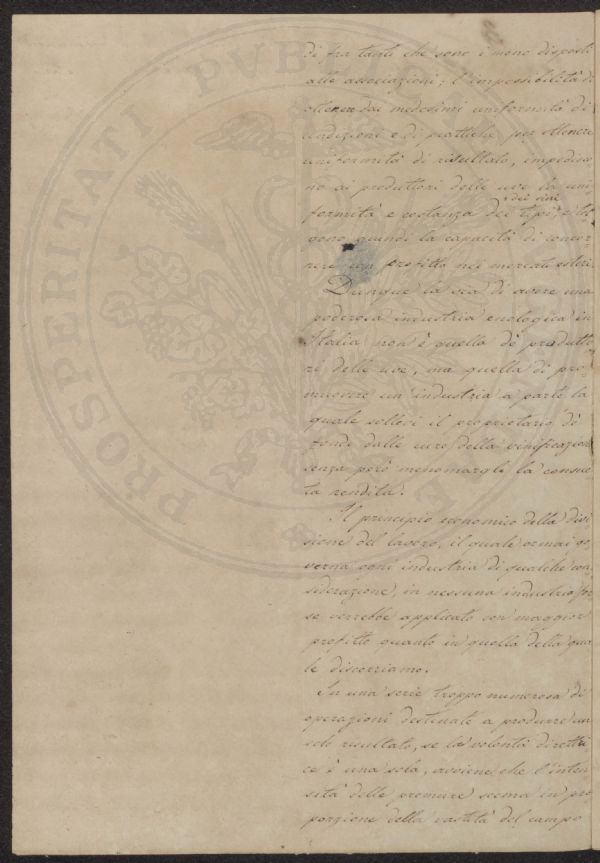 di fra tanti che sono i meno disposti
alle associazioni; l'impossibilità di
ottenere dai medesimi uniformità di
condizioni e di pratiche per ottenere
uniformità di risultato, impedisco
no ai produttori delle uve la uni
formità e costanza dei tipi,
dei vini
gono quindi la capacità di concor
rere con profitto nei mercati esteri.
Dunque la via di avere una
poderosa industria enologica in
Italia non è quella de' produtto
ri delle uve, ma quella di pro
muovere un'industria a parte la
quale sollevi il proprietario de'
fondi dalle cure della vinificazione
senza però menomargli la consue
ta rendita.
Il principio economico della divi
sione del lavoro, il quale ormai go
verna ogni industria di qualche con
siderazione, in nessuna industria for
se verrebbe applicato con maggior
profitto quanto in quella della qua
le discorriamo.
In una serie troppo numerosa di
operazioni destinate a produrre un
solo risultato, se la volontà diretti
ce è una sola, avviene che l'inten
sità delle premure scema in pro
porzione della vastità del campo
PROSPERITATI PVB